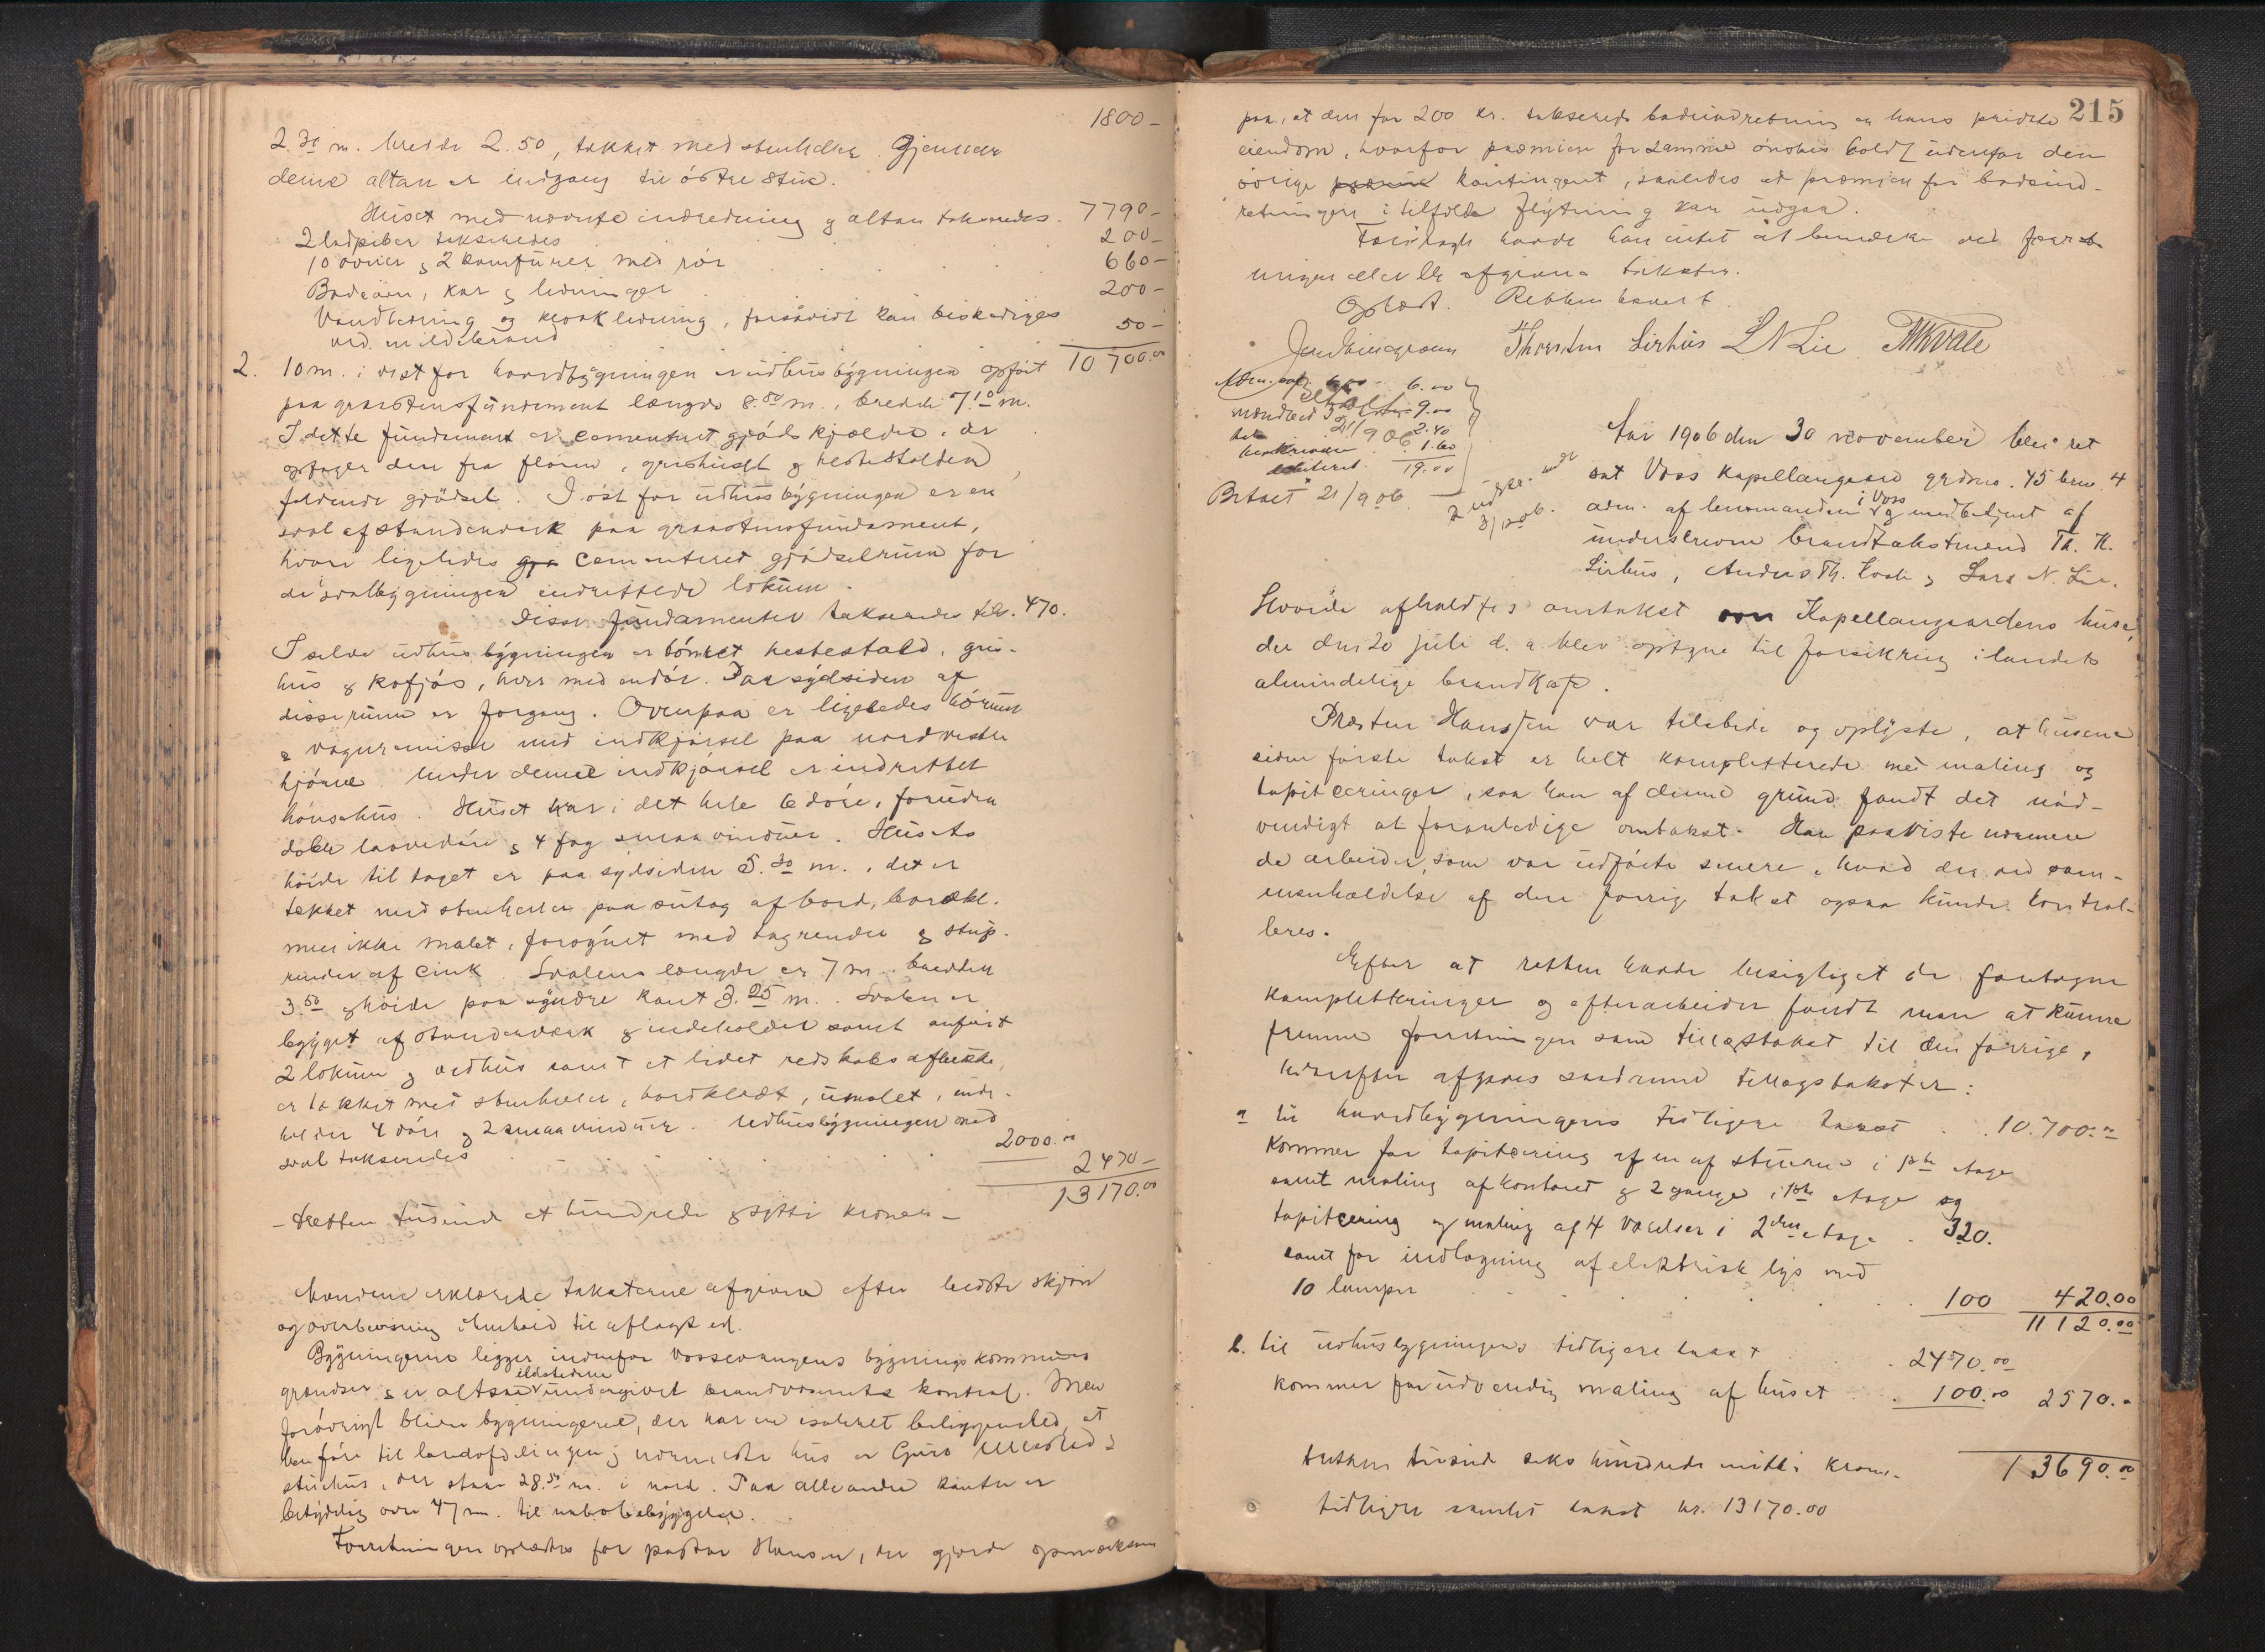 1800 -
2.30 m. bredde 2.50, tækket med stenheller. Gjennem
denne altan er indgang til østre stue.
Huset med nævnte indredning og altan takseredes. 7790 -
2 ladpiber takseredes . . . 200 -
10 ovner og 2 komfurer med rør . . . 660 -
Badeovn, kar og ledninger . . . 200 -
Vandledning og kloakledning, forsåvidt kan beskadiges 50 -
ved ildebrand
2. 10 m. i vest for hovedbygningen er udhusbygningen opført 10 700.00
paa graastensfundement længde 8.80 m., bredde 7.10 m.
I dette fundement er cementeret gjødskjælder, der
optager den fra floren, grishuset og hestestalden
faldende gjødsel. I øst for udhusbygningen er en
sval af standerverk paa graastensfundament,
hvori ligeledes gjø cementeret gjødselrum for
de i svalbygningen indrettede lokum.
Disse fundamenter takseredes til kr. 470.
I selve udhusbygningen er tømret hestestald, gris-
hus og kofjøs, hver med en dør. Paa sydsiden af
disse rum er forgang. Ovenpaa er ligeledes hörum
og vognremisse med indkjørsel paa nordvestre
hjørne. Under denne indkjørsel er indrettet
hønsehus. Huset har i det hele 6 døre, foruden
doble laavedøre og 4 fag smaa vinduer. Husets
høide til taget er paa sydsiden 5.30 m., det er
tækket med stenheller paa sutag af bord, bordkl.
men ikke malet, forsynet med tagrender og stup-
render af cink. Svalens længde er 7 m. bredden
3.50 og høide paa syndre kant 3.25 m. Svalen er
bygget af standerverk og indeholder samt anført
2 lokum og vedhus samt et lidet redskabsaflukke,
er tækket med stenheller, bordklædt, umalet, inde-
holder 4 døre og 2 smaa vinduer. Udhusbygningen med
sval takseredes . . . 2000.00
2470 -
13170.00
- tretten tusinde et hundrede og sytti kroner -
Mændene erklærede taksterne afgivne efter bedste skjøn
og overbevisning i henhold til aflagt ed.
Bygningerne ligger indenfor Vossevangens bygningskommunes
ildstederne
grændser og er altsaa undergivet brandvæsenets kontrol. Men
forøvrigt bliver bygningerne, der har en isoleret beliggenhed, at
henføre til landafdelingen; nærmeste hus er Guro Ullestad's
stuehus, der staar 28.50 m. i nord. Paa alle andre kanter er
betydelig over 47 m. til nabobebyggelse.
Forretningen oplæstes for pastor Hansen, der gjorde opmærksom
215
paa, at den for 200 kr. takserede badeindretning er hans private
eiendom, hvorfor præmien for samme ønskes holdt udenfor den
øvrige præmie kontingent, saaledes at præmien for badeind-
retningen i tilfælde flytning kan udgaa.
Forøvrigt havde han intet at bemærke ved forret-
ningen eller de afgivne takster.
Oplæst. Retten hævet.
Thorsten Lirhus L N Lie AThKvale
6.00
9.00
2.40
1.60
19.00
Betalt 21/9 06.
Aar 1906 den 30 november blev ret
sat Voss Kapellangaard gardsno. 45 brno 4
i Voss
adm. af lensmanden og medbetjent af
underskrevne brandtakstmænd Th. K.
Lirhus, Anders Th. Kvale og Lars N. Lie.
Hvorda afholdtes omtakst over Kapellangaardens huse,
der den 20 juli d. a. blev optagne til forsikring i landets
almindelige brandkasse.
Præsten Hanssen var tilstede og oplyste, at husene
siden første takst er helt kompletterede med maling og
tapitseringer, saa han af denne grund fandt det nød-
vendigt at foranledige omtakst. Han paaviste nærmere
de arbeider, som var udførte senere, hvad der ved sam-
menholdelse af den forrige takst ogsaa kunde kontrol-
leres.
Efter at retten havde besigtiget de foretagne
kompletteringer og efterarbeider fandt man at kunne
fremme forretningen som tillægstakst til den forrige,
hvorefter afgaves saadanne tillægstakster:
a til hovedbygningens tidligere takst . . 10.700.00
kommer for tapitsering af en af stuerne i 1ste etage
samt maling af kontoret og 2 gange i 1ste etage og
tapitsering og maling af 4 værelser i 2den etage . 320.
samt for indlægning af elektrisk lys med
10 lamper . . . 100 420.00
11120.00
b. til udhusbygningens tidligere takst . . 2470.00
kommer for udvendig maling af huset . . 100.00 2570.-
tretten tusinde seks hundrede nitti kroner. 13690.00
tidligere samlet takst kr. 13170.00